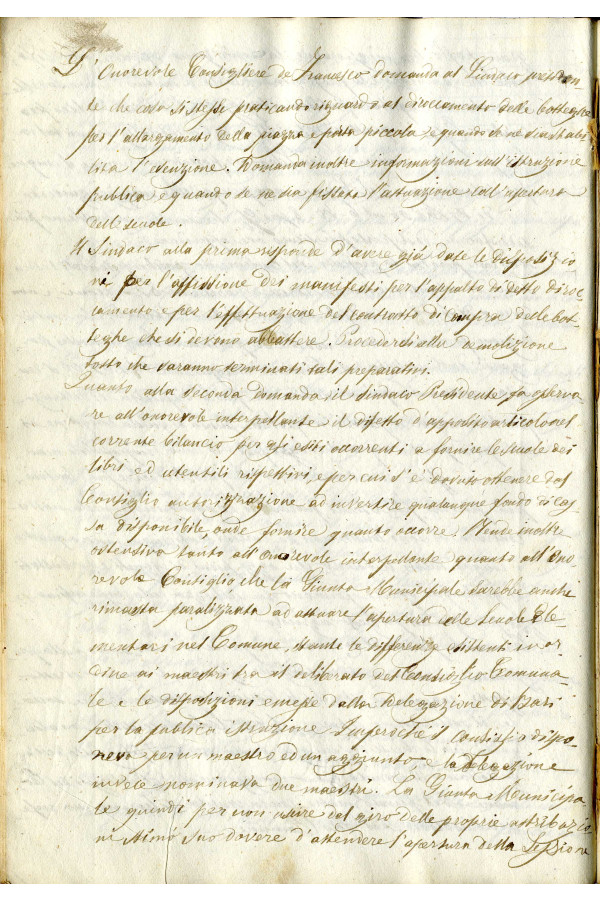 L'Onorevole Consigliere de Francesco domanda al Sindaco presiden-
te che cosa si stesse praticando riguardo al diroccamento delle botteghe
per l'allargamento della piazza e porta piccola, e quando se ne sia stabi-
lita l'esecuzione. Domanda inoltre informazioni sull'istruzione
pubblica e quando se ne sia fissata l'attuazione coll'apertura
delle scuole.
Il Sindaco alla prima risponde d'avere già date le disposizio
ni per l'affissione dei manifesti per l'appalto di detto diroc-
camento e per l'effettuazione del contratto di compra delle bot-
teghe che si devono abbattere. Procedersi alla demolizione
tosto che saranno terminati tali preparativi.
Quanto alla seconda domanda il Sindaco Presidente fa osserva
re all'onorevole interpellante il difetto d'apposito articolo nel
corrente bilancio per gli esiti occorrenti a fornire le scuole dei
libri ed utensili rispettivi, e per cui s'è dovuto ottenere dal
Consiglio autorizzazione ad invertire qualunque fondo di cas
sa disponibile, onde fornire quanto occorre. Rende inoltre
ostensivo tanto all'onorevole interpellante quanto all'Ono
revole Consiglio che la Giunta Municipale sarebbe anche
rimasta paralizzata ad attuare l'apertura delle Scuole Ele
mentari nel Comune, stante le differenze esistenti in or
dine ai maestri tra il deliberato del Consiglio Comuna-
le e le disposizioni emesse dalla Delegazione di Bari
per la publica istruzione. Imperochè il Consiglio dispo
neva per un maestro ed un aggiunto e la Delegazione
invece nominava due maestri. La Giunta Municipa
le quindi per non uscire dal giro delle proprie attribuzio
ni stimò suo dovere d'attendere l'apertura della Sessione